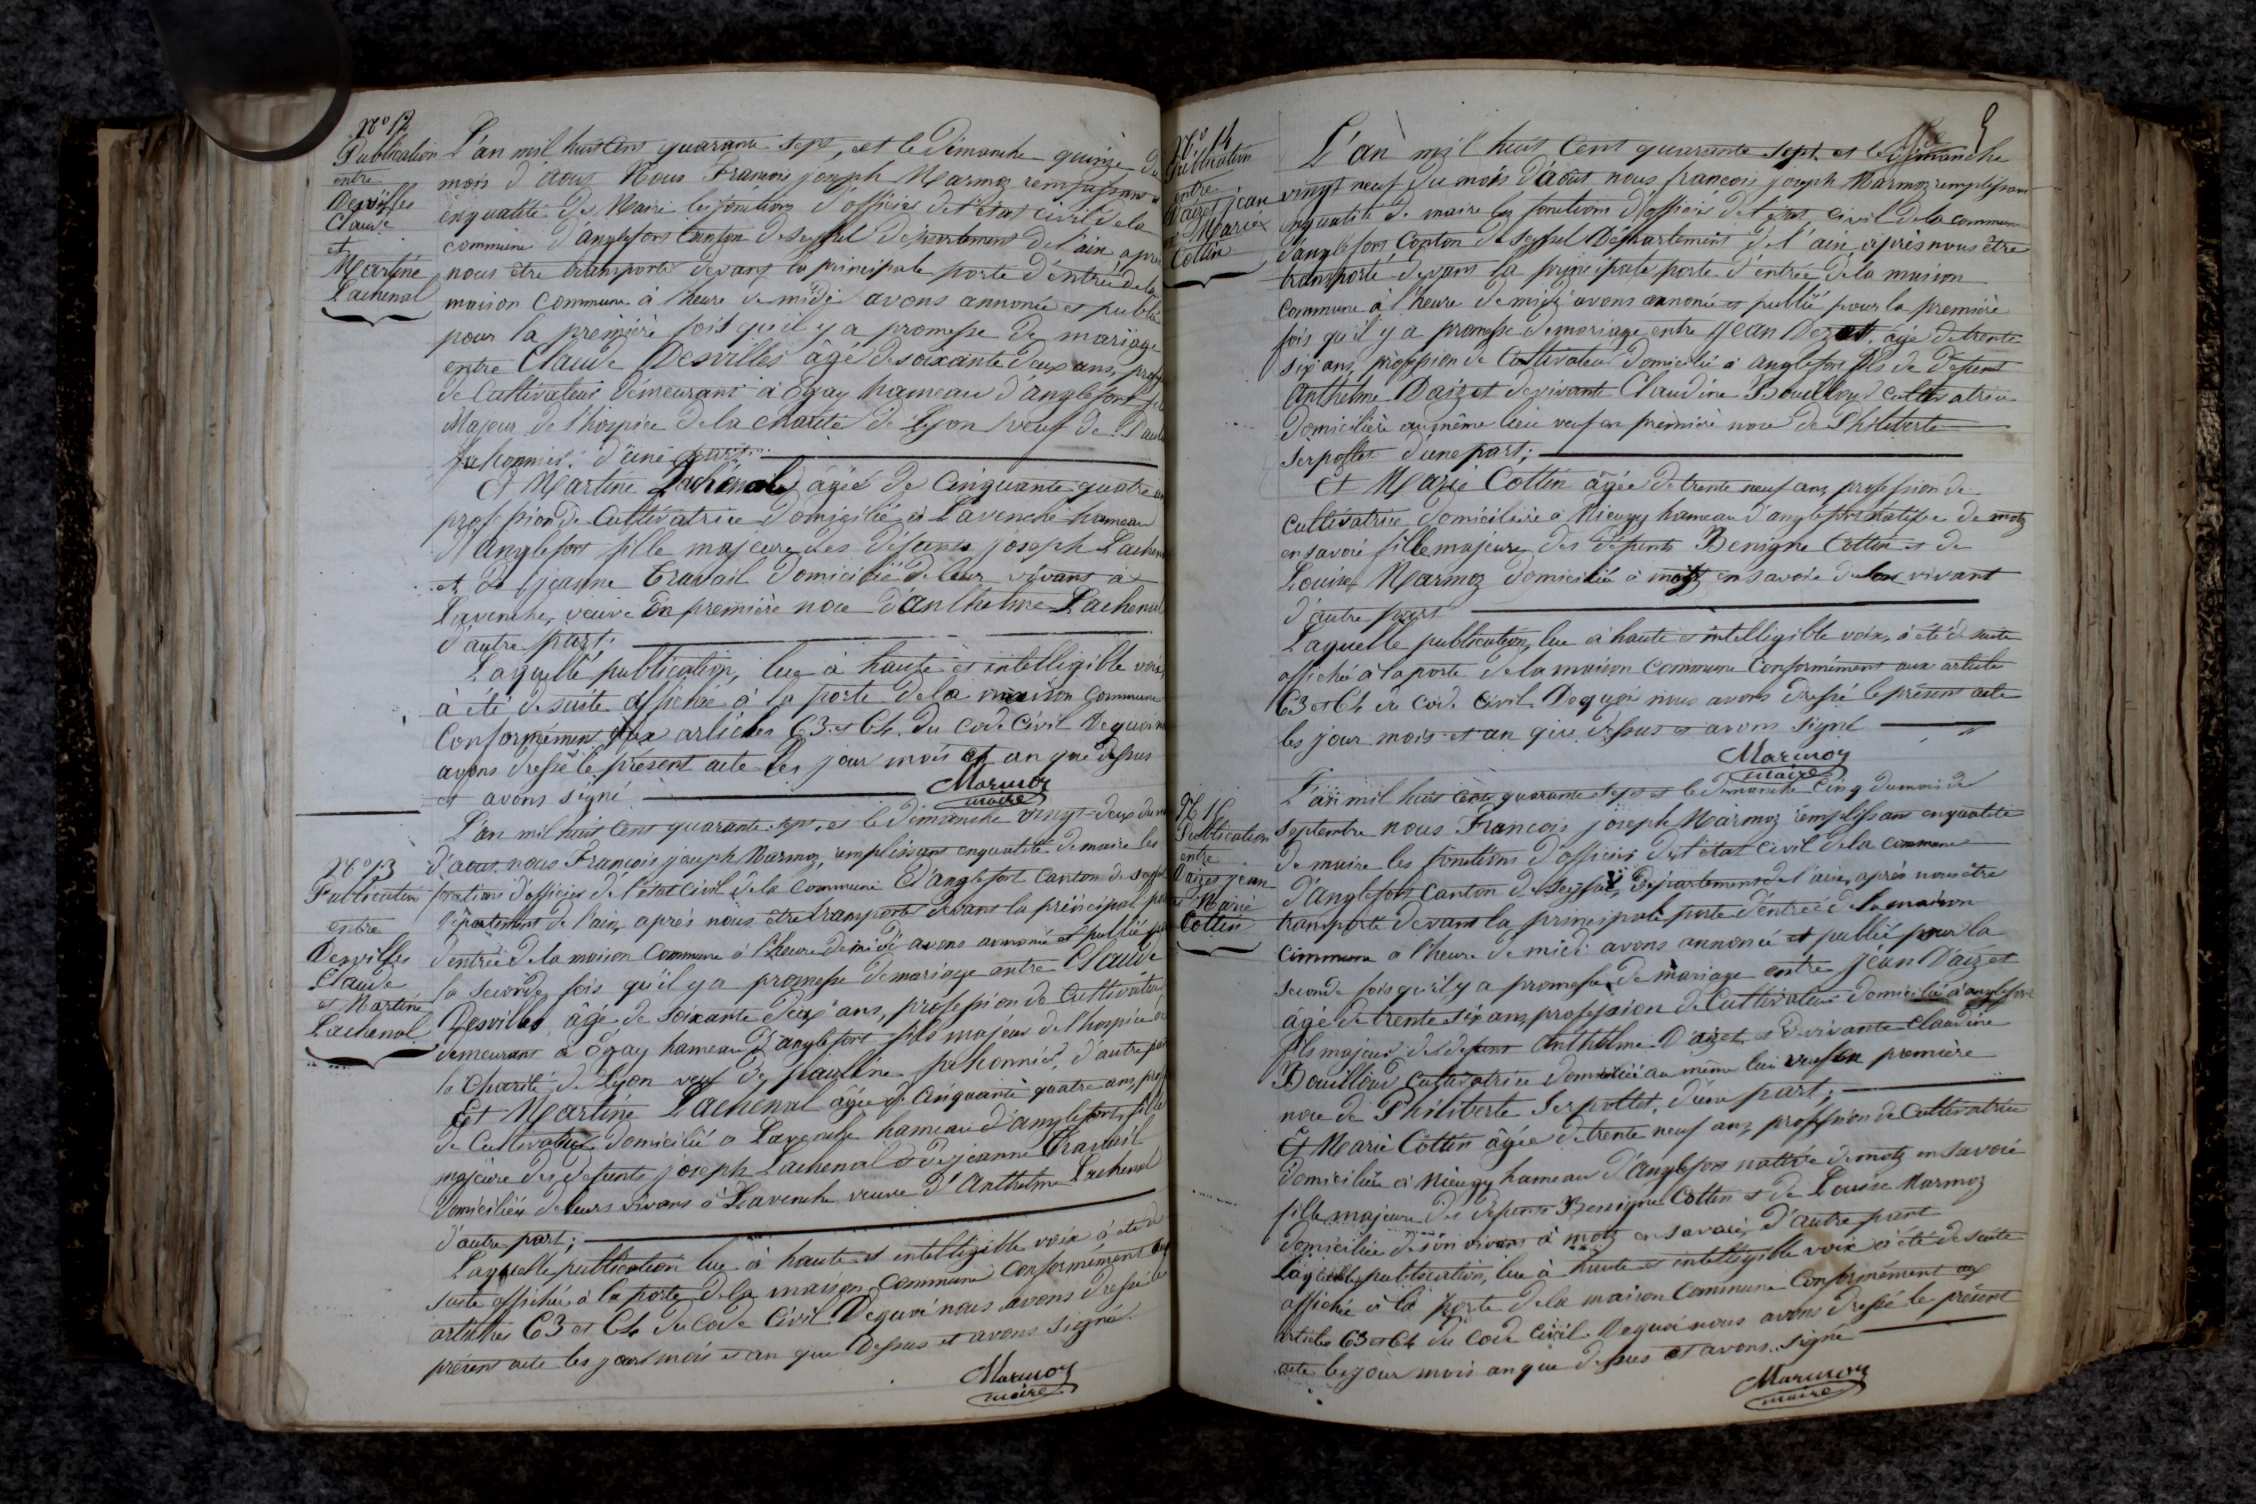 N° 12
Publication
entre
Desvilles
Claude
et
Martine
Lachenal
L'an mil huit cent quarante sept, et le Dimanche quinze du
mois d'aous Nous François joseph Marmoz remplissant
enqualité de Maire les fonctions d'officier de l'état civil de la
commune d'anglefort Canton de seyssel département de l'ain après
nous être transporté devant la principale porte d'entrée de la
maison commune à l'heure de midi avons annoncé et publié
pour la première fois qu'il y a promesse de mariage
entre Claude Desvilles âgé de soixante deux ans,
de Cultivateur demeurant à Ogay hameau d'anglefort
Majeur de l'hospice de la charité de Lyon veuf de
d'une part
Et Martine Lachenal âgée de Cinquante quatre
profession de Cultivatrice domicilié à Lavenche hameau
d'Anglefort fille majeure des défunts joseph
et de jeanne Travail domicilié de leur vivant à
Lavenche, veuve en première noce d'anthelme Lachenal
d'autre part;
Laquelle publication, lue à haute et intelligible voix,
à été de suite affichée à la porte de la maison Commune
Conformément aux articles 63 et 64 du code Civil De quoi
avons dressé le présent acte les jour mois et an que dessus
et avons signé
Marmoz
maire
N° 13
Publication
entre
Desvilles
Claude
et Martine
Lachenal
L'an mil huit cent quarante sept, et le dimanche vingt-deux du
d'aout nous François joseph Marmoz, remplissant enqualité de maire les
fonctions d'officier de l'état civil de la commune d'Anglefort canton de
département de l'ain, après nous être transporté devant la principal
d'entrée de la maison Commune à l'heure de midi avons annoncé et publié
la seconde fois qu'il y a promesse de mariage entre Claude
Desvilles âgé de soixante deux ans, profession de Cultivateur
demeurant à Ogay hameau d'anglefort fils majeur de l'hospice
la Charité de Lyon veuf de pauline d'autre
Et Martine Lachenal âgée de Cinquante quatre ans,
de Cultivatrice domicilié à Lavenche hameau d'anglefort, fille
majeure des defunts joseph Lachenal et de jeanne Travail
domiciliés de leurs vivans à Lavenche veuve d'Anthelme Lachenal
d'autre part;
Laquelle publication lue à haute et intelligible voix à été de
suite affichée à la porte de la maison commune conformément
articles 63 et 64 du code Civil De quoi nous avons dressé le
présent acte les jour mois et an que Dessus et avons signé
Marmoz
maire
N° 14
Publication
entre
Daizet jean
et Marie
Cottin
L'an mil huit Cent quarante sept et le dimanche
vingt neuf du mois d'août nous françois joseph Marmoz remplissant
enqualité de maire les fonctions d'officier de l'état civil de la commune
d'anglefort Canton de seyssel Département de l'ain, après nous être
transporté devant la principale porte d'entrée de la maison
commune à l'heure de midi avons annoncé et publié pour la première
fois qu'il y a promesse de mariage entre jean âgé de trente
six ans, profession de Cultivateur domicilié à anglefort fils de défunt
Anthelme Daizet et de vivant Claudine Bouilloud cultivatrice
domicilière au même lieu veuf en première noce de Philiberte
Serpollet d'une part;
Et Marie Cottin âgée de trente neuf ans, profession de
cultivatrice domicilière à hameau d'anglefort native de motz
en savoie fille majeure des défunts Benigne Cottin et de
Louise Marmoz domicilié à motz en savoie de leur vivant
d'autre part
Laquelle publication, lue à haute et intelligible voix, à été de suite
affichée à la porte de la maison commune conformément aux article
63 et 64 du code civil De quoi nous avons dressé le présent acte
les jour mois et an que dessus et avons signé
Marmoz
maire
Publication
entre
Daizet jean
et Marie
Cottin
L'an mil huit cent quarante sept et le dimanche Cinq du mois de
septembre nous François joseph Marmoz remplissant enqualité
de maire les fonctions d'officier de l'état civil de la commune
d'Anglefort canton de Seyssel, département de l'ain, après nous être
transporté devant la principale porte d'entrée de la maison
commune à l'heure de midi avons annoncé et publié pour la
seconde fois qu'il y a promesse de mariage entre jean Daizet
âgé de trente six ans, profession de Cultivateur domicilié à anglefort
fils majeur de defunt Anthelme Daizet et de vivante Claudine
Bouilloud cultivatrice domicilié au même lieu veuf en première
noce de Philiberte Serpollet, d'une part;
Et Marie Cottin âgée de trente neuf ans, profession de Cultivatrice
domiciliée à hameau d'Anglefort native de motz en savoie
fille majeure des defunts Benigne Cottin et de Louise Marmoz
domiciliée de son vivant à motz en savoie, d'autre part
Laquelle publication, lue à haute et intelligible voix à été de suite
affichée à la porte de la maison Commune Conformément aux
articles 63 et 64 du code civil De quoi nous avons dressé le présent
acte les jour mois an que dessus et avons signé
Marmoz
maire